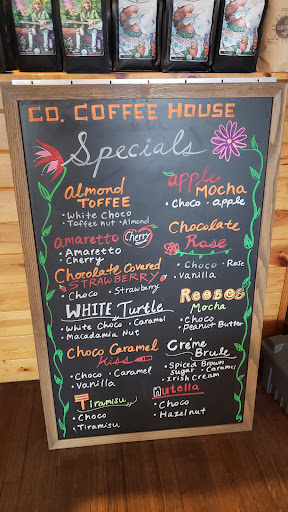 CO. COFFEE HOUSE
Specials
Almond
TOFFEE
• White Choco
Toffee nut • Almond
amaretto Cherry
• Amaretto
Cherry
Chocolate Covered
STRAWBERRY
• Choco • Strawberry
WHITE Turtle
• White Choco • Caramel
Macadamia Nut
Choco Caramel
Kiss
• Choco • Caramel
• Vanilla
Tiramisu
• Choco
• Tiramisu
apple
MOCHA
• Choco • apple
Chocolate
Rose
• Choco • Rose
• Vanilla
Reeses
Mocha
• Choco
Peanut Butter
Créme
Brule
• Spiced Brown
Sugar • Caramel
• Irish Cream
Nutella
• Choco
• Hazelnut